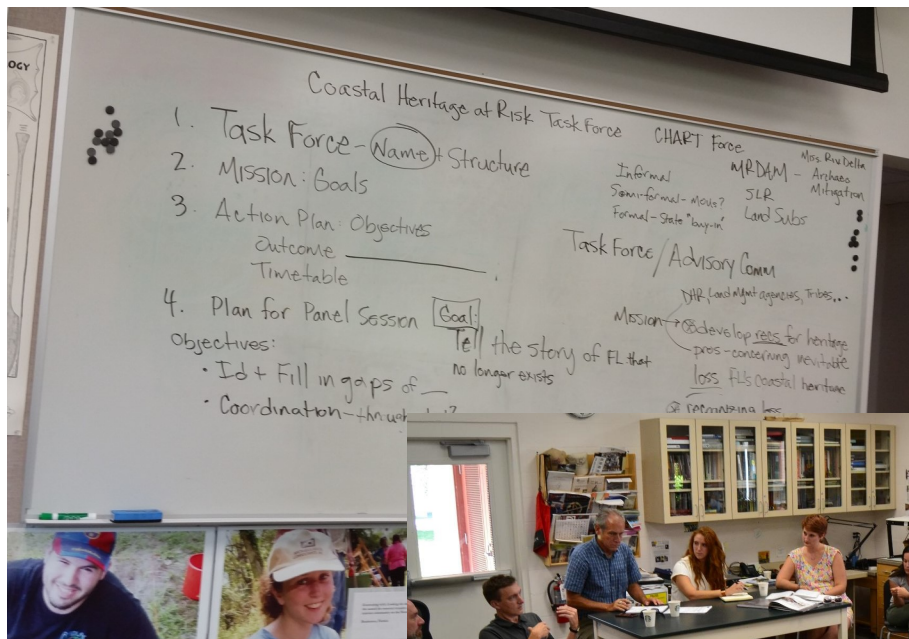 OGY
Coastal Heritage at Risk Task Force
CHART Force
1. Task Force - Name + Structure
2. Mission: Goals
3. Action Plan: Objectives
Outcome
Timetable
4. Plan for Panel Session Goal:
Tell the story of FL that
no longer exists
Objectives:
• Id + Fill in gaps of __
• Coordination -
Informal
Semi-formal - MOUs?
Formal - State "buy-in"
MRDAM - Miss Riv Delta
Archaeo
Mitigation
SLR
Land Subs
Task Force / Advisory Comm
DHR, Land Mgmt agencies, Tribes, ...
Mission
develop recs for heritage
pres - concerning inevitable
loss FL's coastal heritage